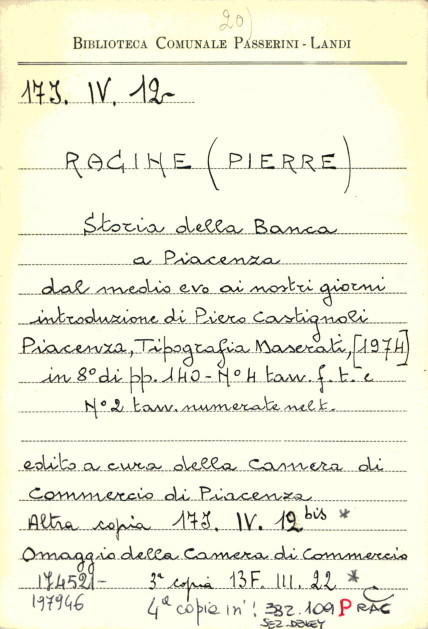 20)
BIBLIOTECA COMUNALE PASSERINI - LANDI
17J. IV. 12
RACINE (PIERRE)
Storia della Banca
a Piacenza
dal medio evo ai nostri giorni
introduzione di Piero Castignoli
Piacenza, Tipografia Maserati, [1974]
in 8° di pp. 140 - N° 4 tav. f. t. e
N° 2 tav. numerate nel t.
edito a cura della Camera di
Commercio di Piacenza
Altra copia 17J. IV. 12 bis *
Omaggio della Camera di Commercio
174521- 3ª copia 13F. III. 22 *
197946 4ª copia in: 332.109 P RAC
SEZ. DEWEY